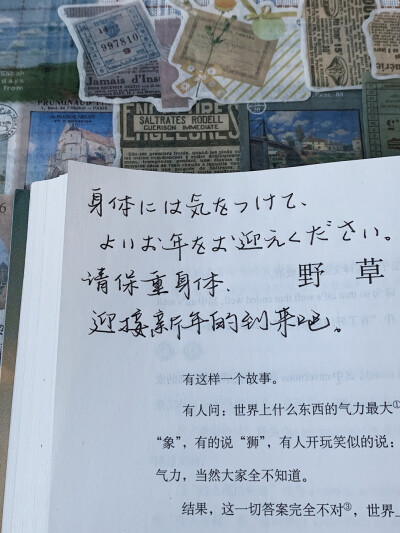 997810
Jamais d'Ins
SALTRATES RODELL
GUERISON IMMEDIATE
身体には気をつけて、
よいお年をお迎えください。
请保重身体、
野草
迎接新年的到来吧。
有这样一个故事。
有人问：世界上什么东西的气力最大①
“象”，有的说“狮”，有人开玩笑似的说：
气力，当然大家全不知道。
结果，这一切答案完全不对③，世界上